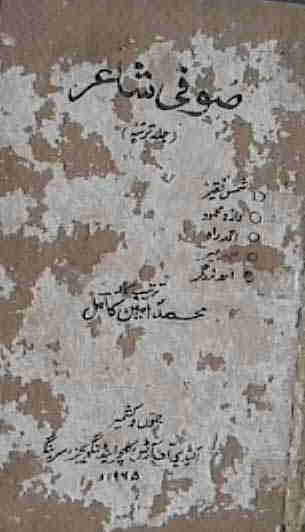 صوفی شاعر
(جلد ترٛیٚیم)
شمس فقیر
وازہ محمود
احمد راہ
احد زرگر
ترتیب کار
محمد امین کامل
جموں و کشمیر
اکیڈیمی آف آرٹس کلچر اینڈ لینگویجز سرینگر
۱۹۶۵